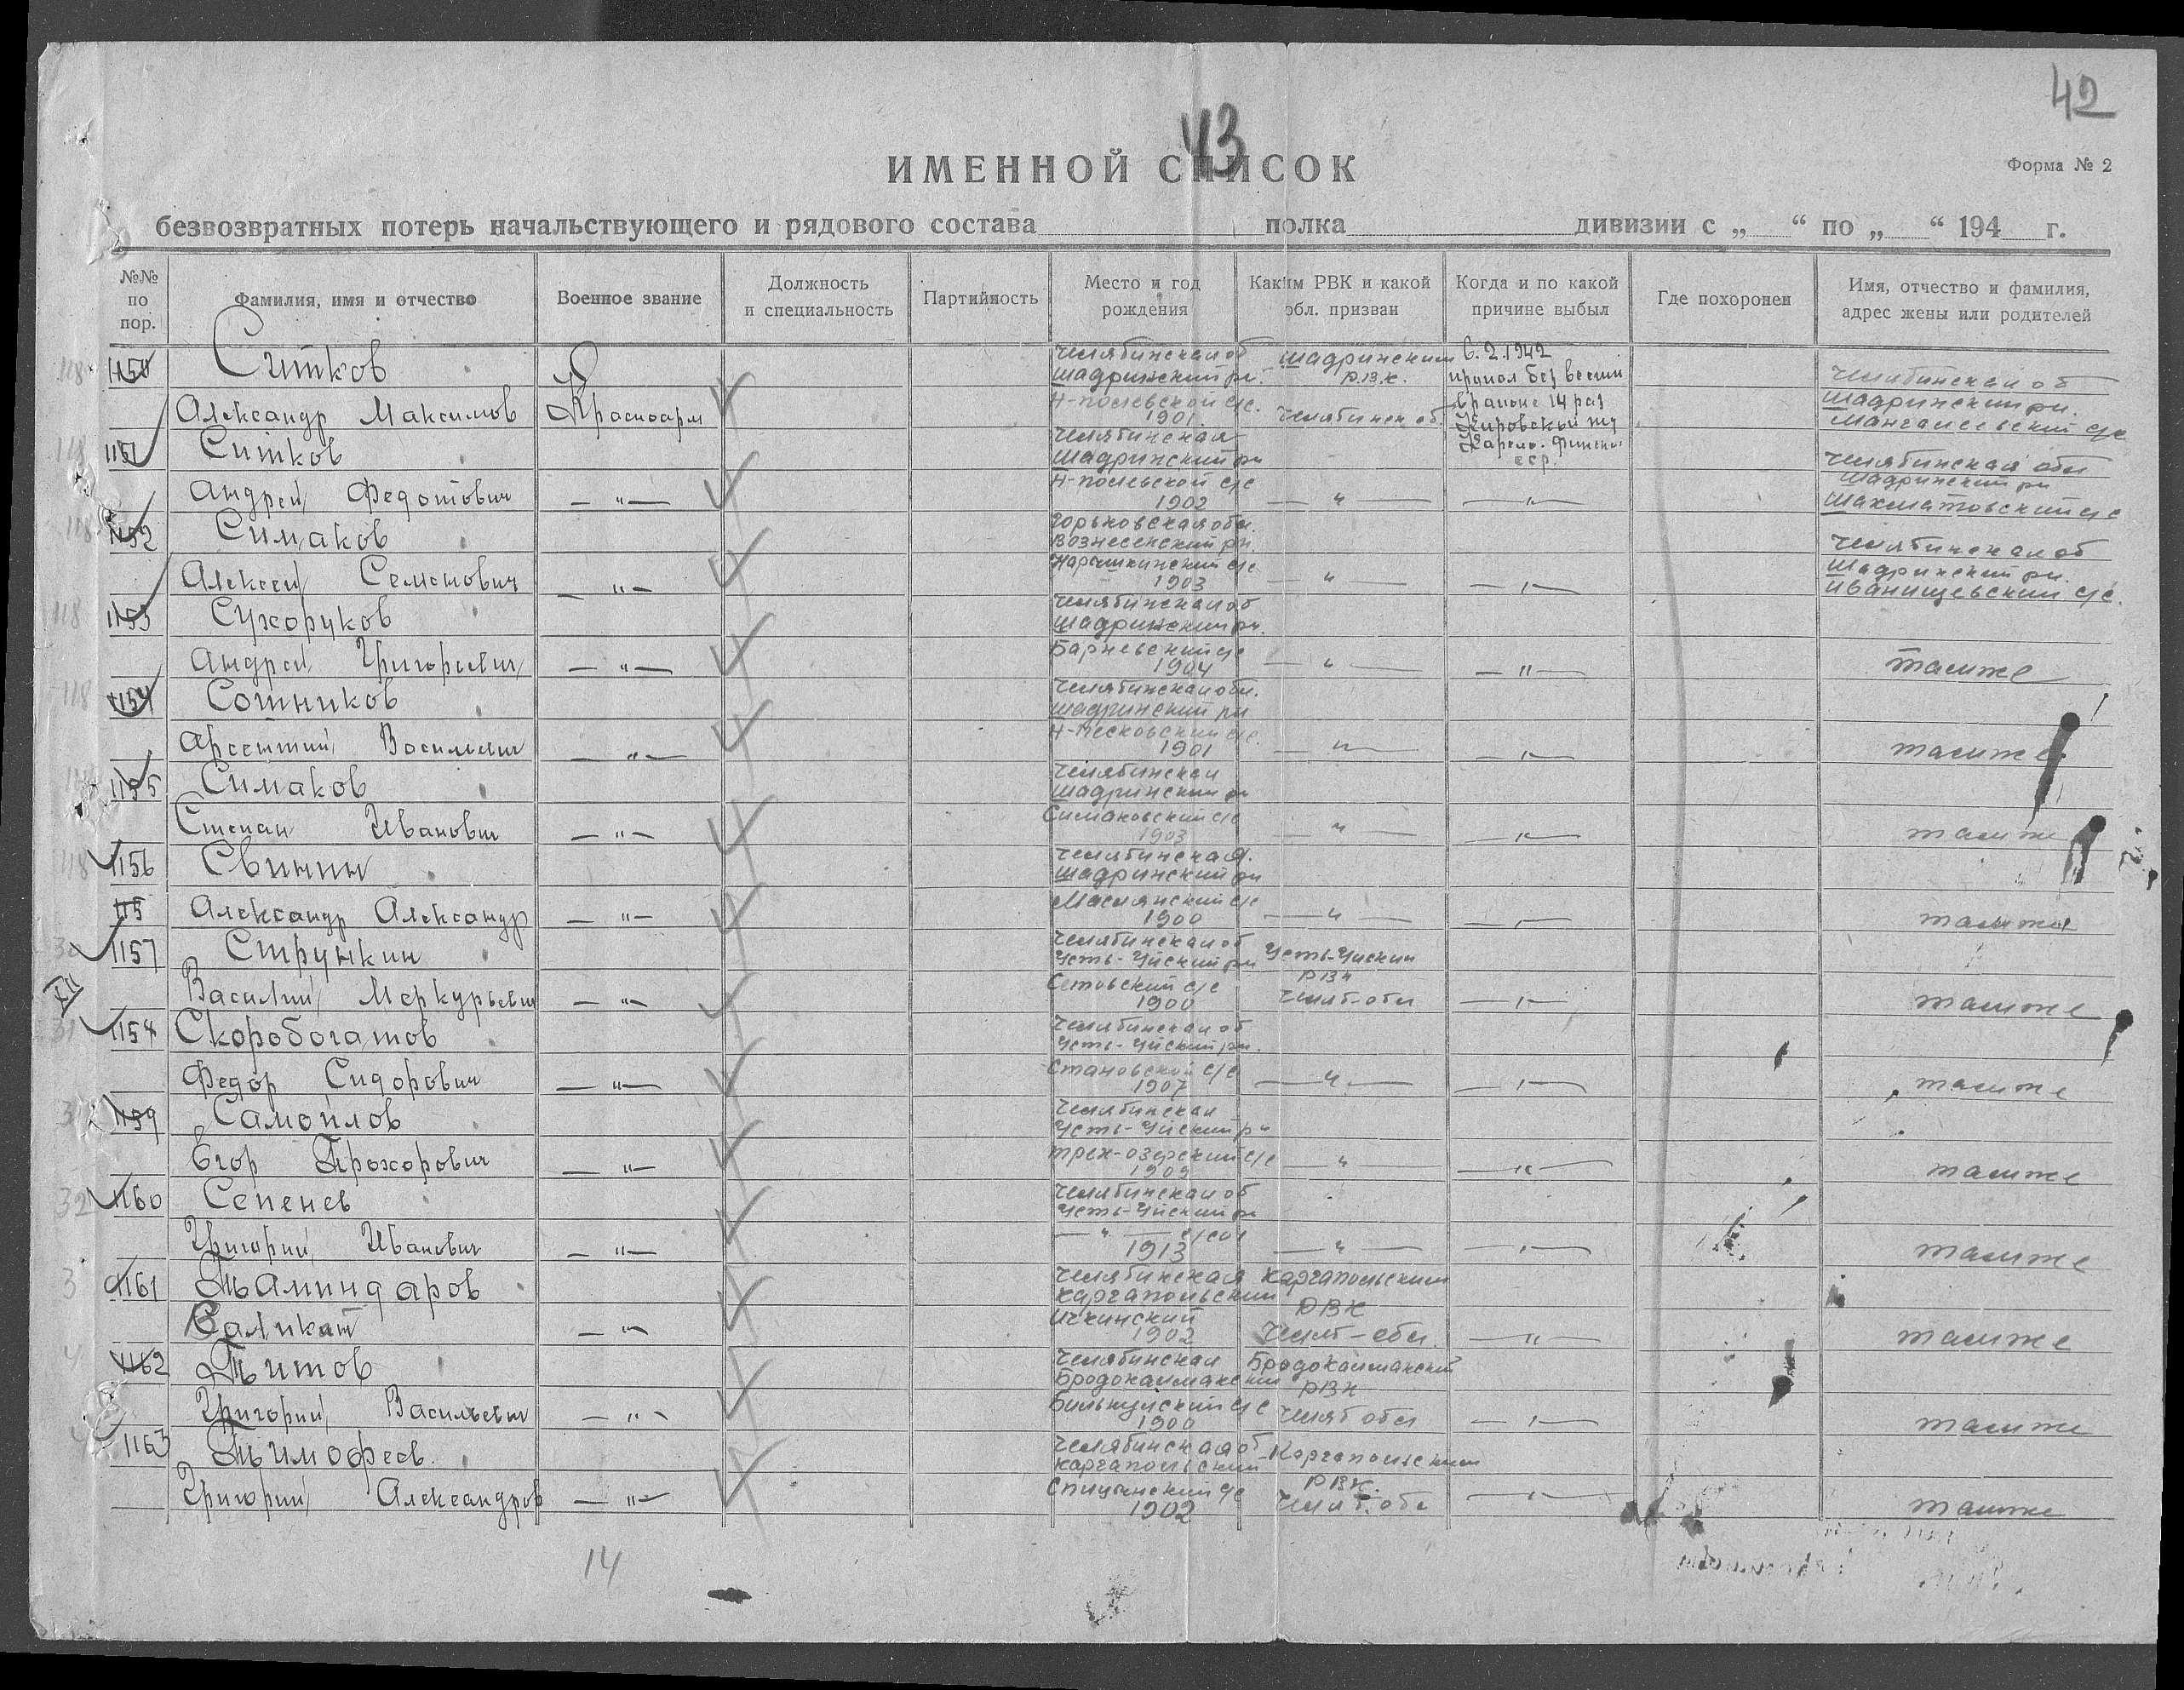 42
43
ИМЕННОЙ СПИСОК
Форма № 2
безвозвратных потерь начальствующего и рядового состава полка дивизии с „ “ по „ “ 194 г.
№№ по пор.
Фамилия, имя и отчество
Военное звание
Должность и специальность
Партийность
Место и год рождения
Каким РВК и какой обл. призван
Когда и по какой причине выбыл
Где похоронен
Имя, отчество и фамилия, адрес жены или родителей
1150 Ситков Челябинская об Шадринским 6.2.1942
Шадринский рн. Р.В.К. пропал без вести Челябинская об
Александр Максимов Красноарм 1901 Челябинск об. в районе 14 раз Шадринский рн.
1151 Ситков Челябинская Кировской жд
Шадринский рн Карело-Финской сср. Челябинская обл
Андрей Федотович — " — 1902 — " — — " — Шадринский рн
Шахматовский с/с
1152 Симаков Горьковская обл.
Вознесенский рн. Челябинская об
Алексей Семенович — " — Нарышкинский с/с 1903 — " — — " — Шадринский рн.
Иванищевский с/с.
1153 Сухоруков Челябинская об
Шадринский рн.
Андрей Григорьевич — " — Барневский с/с 1904 — " — — " — также
1154 Сотников Челябинская обл.
Шадринский рн
Арсентий Васильевич — " — Н-Песковский с/с. 1901 — " — — " — также
1155 Симаков Челябинская
Шадринский рн
Степан Иванович — " — Симаковский с/с 1903 — " — — " — также
1156 Свинин Челябинская.
Шадринский рн
115 Александр Александр — " — Маслянский с/с 1900 — " — — " — также
1157 Стрункин Челябинская об
Усть-Уйский рн Усть-Уйский
XII Василий Меркурьевич — " — с/с 1900 РВК Челяб-обл — " — также
1158 Скоробогатов Челябинская об
Усть-Уйский рн.
Федор Сидорович — " — Становской с/с 1907 — " — — " — также
1159 Самойлов Челябинская
Усть-Уйский рн
Егор Прохорович — " — Трех-озерский с/с 1909 — " — — " — также
32 1160 Сепенев Челябинская об
Усть-Уйский рн
Григорий Иванович — " — — " — 1913 — " — — " — также
1161 Таминдаров Челябинская Каргапольским
Каргапольский РВК
Валикат — " — Ичкинский 1902 Челяб-обл. — " — также
1162 Титов Челябинская Бродокалмакский
Бродокалмакский РВК
Григорий Васильевич — " — с/с 1900 Челяб обл — " — также
1163 Тимофеев. Челябинская об Каргапольским
Каргапольский РВК.
Григорий Александров — " — Спицынский с/с 1902 Челяб. обл — " — также
14